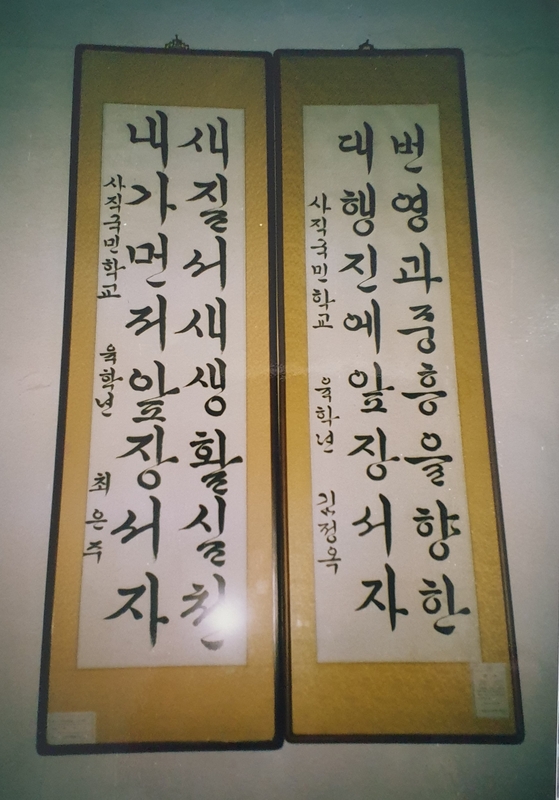 번영과중흥을향한
대행진에앞장서자
사직국민학교 육학년 김정옥
새질서새생활실천
내가먼저앞장서자
사직국민학교 육학년 최은주